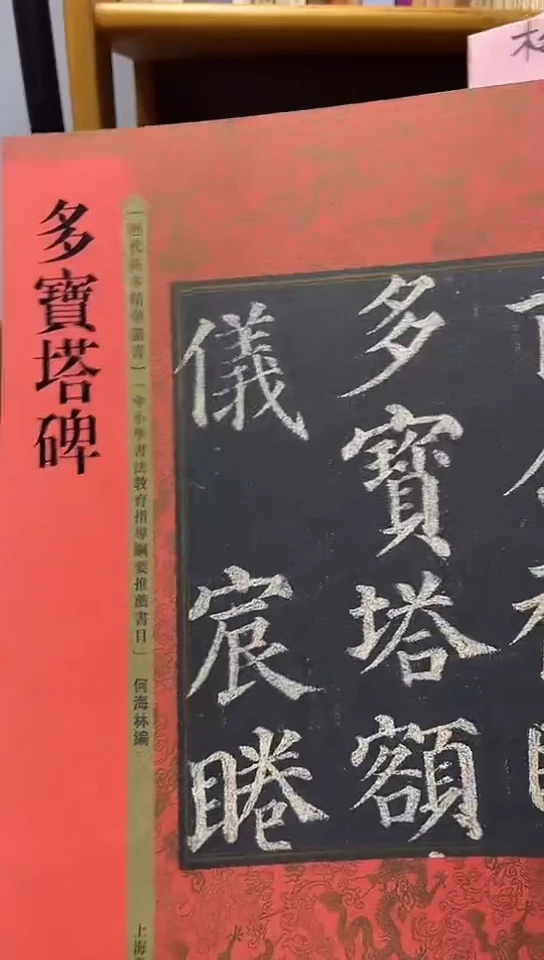 多寶塔碑
［歷代拓本精華叢書］「中小學書法教育指導綱要推薦書目」 何海林編
上海
多寶塔額
儀 宸睠